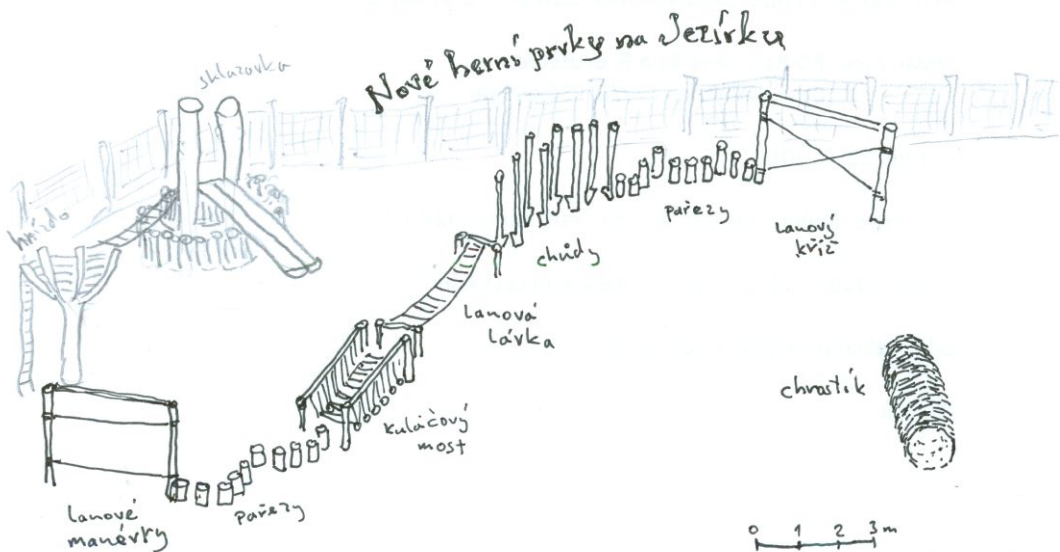 Nové herní prvky na Jezírku
skluzavka
hnízdo
pařezy
lanový
kříž
chůdy
lanová
lávka
chrostík
kuláčový
most
pařezy
lanové
manévry
0 1 2 3 m